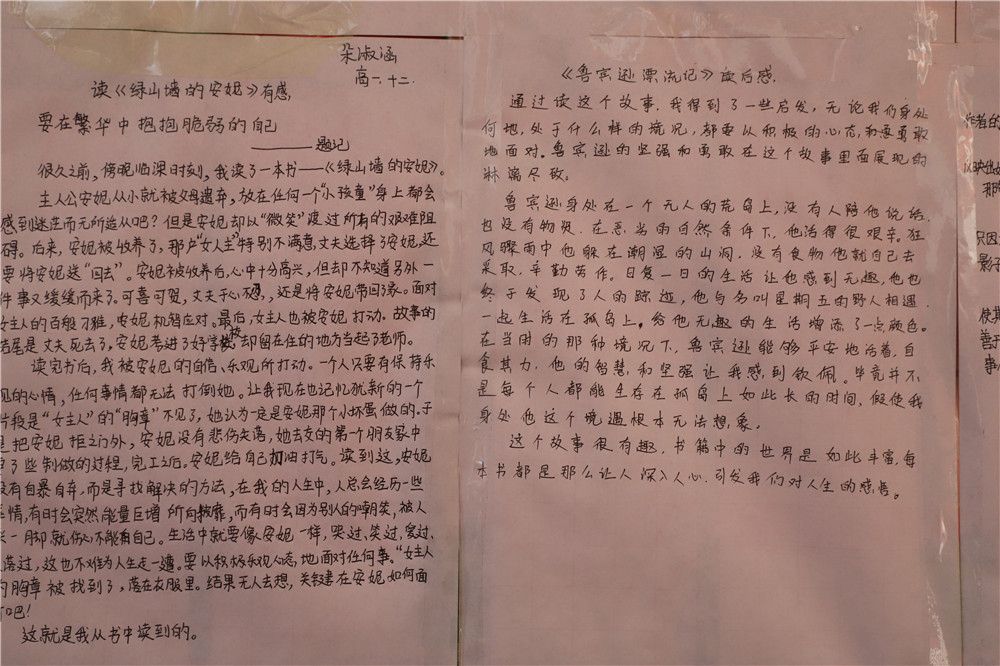 朵淑涵
高一.十二.
读《绿山墙的安妮》有感.
要在繁华中抱抱脆弱的自己
——题记
很久之前,傍晚临深时刻,我读了一本书——《绿山墙的安妮》。
主人公安妮从小就被父母遗弃,放在任何一个“小孩童”身上都会
感到迷茫而无所适从吧?但是安妮却以“微笑”渡过所有的艰难阻
碍。后来,安妮被收养了,那户“女人主”特别不满意丈夫选择了安妮,还
要将安妮送“回去”。安妮被收养后,心中十分高兴,但却不知道另外一
件事又缓缓而来了。可喜可贺,丈夫于心不忍,还是将安妮带回家。面对
女主人的百般刁难,安妮机智应对。最后,女主人也被安妮打动。故事的
结尾是丈夫死去了,安妮考进了好学校,却留在住的地方当起了老师。
读完书后,我被安妮的自信、乐观所打动。一个人只要有保持乐
观的心情,任何事情都无法打倒她。让我现在也记忆犹新的一个
片段是“女主人”的“胸章”不见了,她认为一定是安妮那个小坏蛋做的.于
是把安妮拒之门外,安妮没有悲伤失落,她去交的第一个朋友家中
了些制做的过程,完工之后。安妮给自己加油打气。读到这,安妮
没有自暴自弃,而是寻找解决的方法,在我的人生中,人总会经历一些
事情,有时会突然能量巨增所向披靡,而有时会因为别人的嘲笑,被人
一脚就伤心不能有自己。生活中就要像安妮一样,哭过、笑过、爱过、
落过,这也不难为人生走一遭。要以积极乐观心态,地面对任何事。“女主人
的胸章被找到了,落在衣服里。结果无人去想,关键在安妮如何面
对吧!
这就是我从书中读到的。
《鲁宾逊漂流记》读后感.
通过读这个故事,我得到了一些启发,无论我们身处
何地,处于什么样的境况,都要以积极的心态,和要勇敢
地面对。鲁宾逊的坚强和勇敢在这个故事里面展现的
淋漓尽致。
鲁宾逊身处在一个无人的荒岛上,没有人陪他说话.
也没有物资.在恶劣的自然条件下,他活得很艰辛。狂
风骤雨中也躲在潮湿的山洞,没有食物他就自己去
采取,辛勤劳作。日复一日的生活让他感到无趣,他也
终于发现了人的踪迹,他与名叫星期五的野人相遇
一起生活在孤岛上。给他无趣的生活增添了一点颜色。
在当时的那种境况下,鲁宾逊能够平安地活着,自
食其力,他的智慧,和坚强让我感到钦佩。毕竟并不
是每个人都能生存在孤岛上如此长的时间,假使我
身处他这个境遇根本无法想象。
这个故事很有趣.书籍中的世界是如此丰富,每
本书都是那么让人深入人心.引发我们对人生的感悟。
作者的